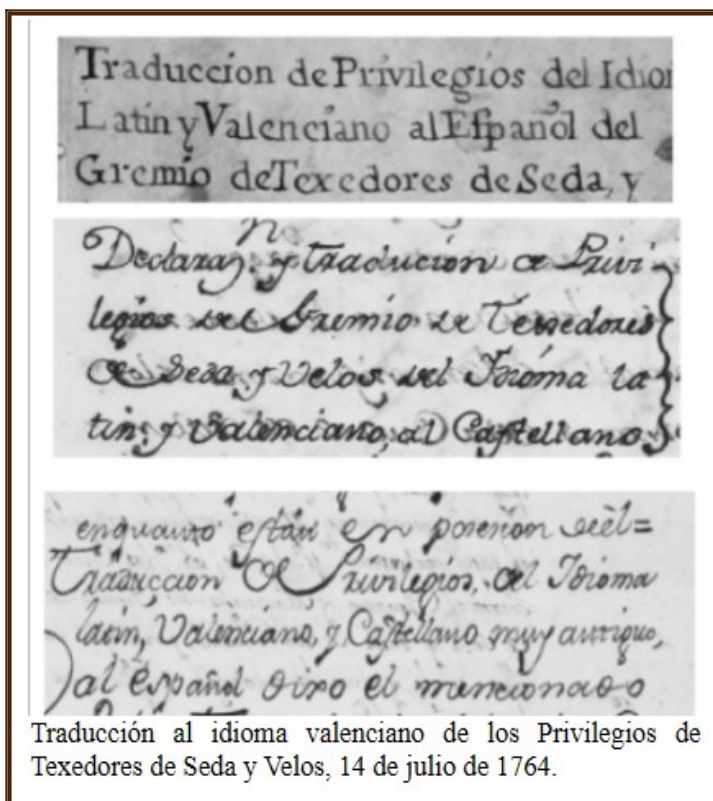 Traduccion de Privilegios del Idio
Latin y Valenciano al Eſpañol del
Gremio de Texedores de Seda, y
Declaraz.n y traducion de Privi
legios del Gremio de Texedores
de Seda y Velos del Idióma la
tin, y Valenciano, al Caſtellano
enquanto eſtan en poseſion del=
Traducción de Privilegios, del Idioma
latin, Valenciano, y Caſtellano muy antiguo,
al español dixo el mencionado
Traducción al idioma valenciano de los Privilegios de
Texedores de Seda y Velos, 14 de julio de 1764.